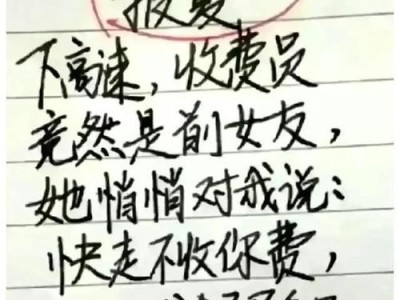 报复
下高速，收费员
竟然是前女友，
她悄悄对我说：
快走不收你费，